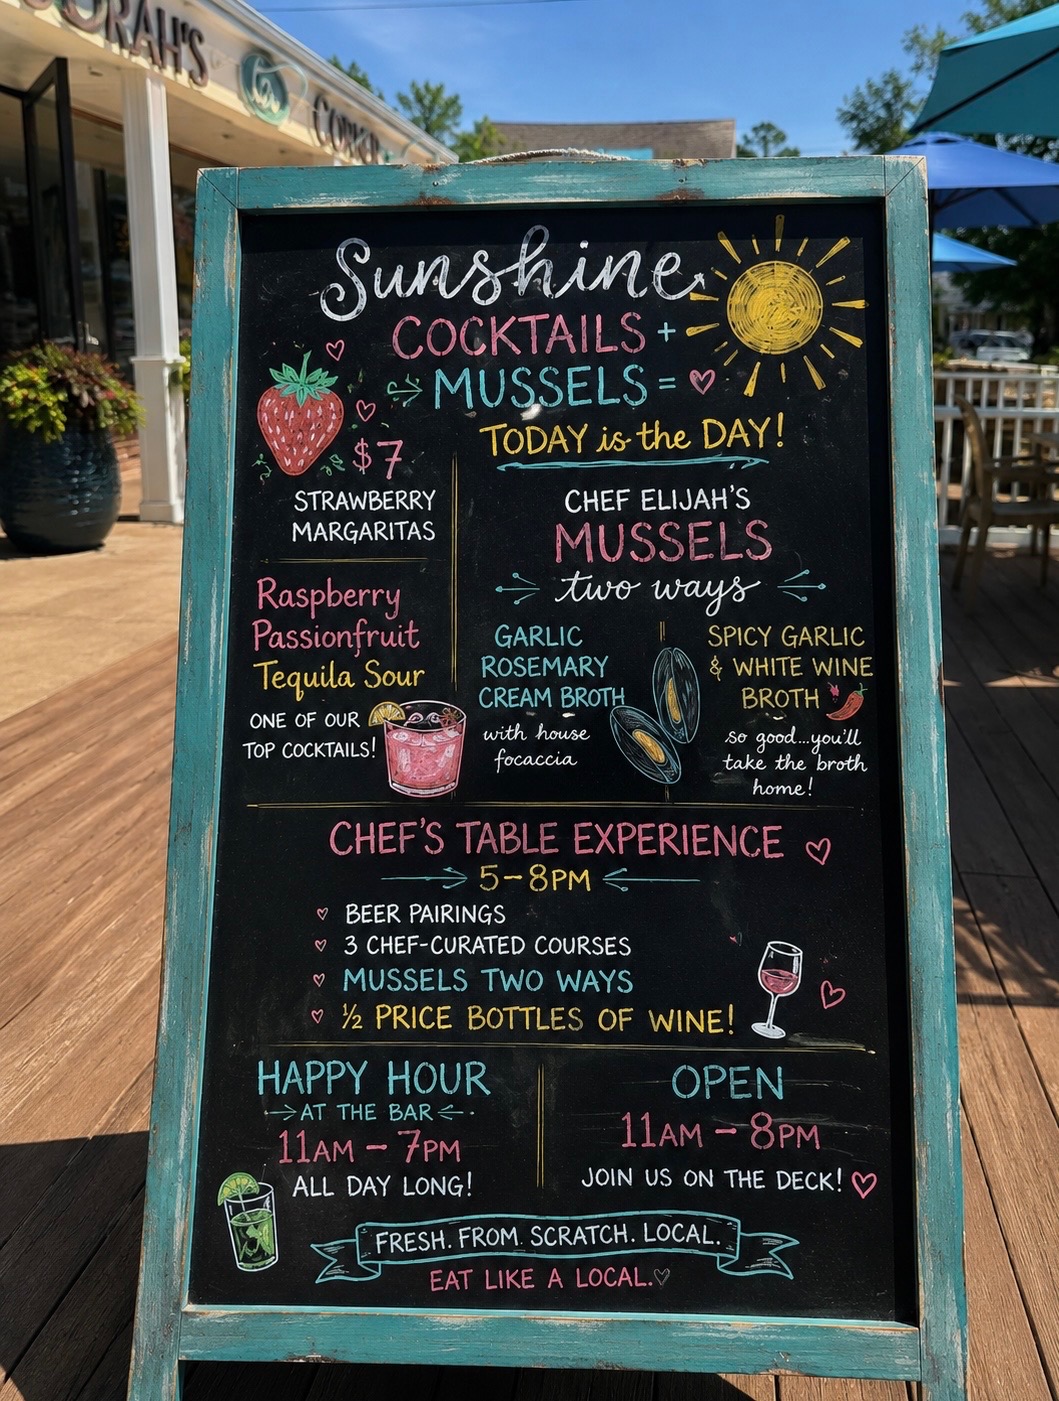 ORAH'S
Sunshine
COCKTAILS +
MUSSELS =
TODAY is the DAY!
$7
STRAWBERRY
MARGARITAS
Raspberry
Passionfruit
Tequila Sour
ONE OF OUR
TOP COCKTAILS!
CHEF ELIJAH'S
MUSSELS
two ways
GARLIC
ROSEMARY
CREAM BROTH
with house
focaccia
SPICY GARLIC
& WHITE WINE
BROTH
so good...you'll
take the broth
home!
CHEF'S TABLE EXPERIENCE
5-8PM
BEER PAIRINGS
3 CHEF-CURATED COURSES
MUSSELS TWO WAYS
½ PRICE BOTTLES OF WINE!
HAPPY HOUR
AT THE BAR
11AM - 7PM
ALL DAY LONG!
OPEN
11AM - 8PM
JOIN US ON THE DECK!
FRESH. FROM. SCRATCH. LOCAL.
EAT LIKE A LOCAL.